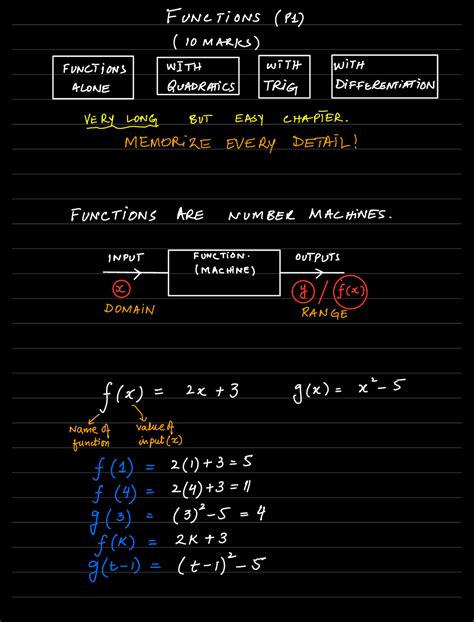 FUNCTIONS (P1)
(10 MARKS)
FUNCTIONS ALONE
WITH QUADRATICS
WITH TRIG
WITH DIFFERENTIATION
VERY LONG BUT EASY CHAPTER.
MEMORIZE EVERY DETAIL!
FUNCTIONS ARE NUMBER MACHINES.
INPUT FUNCTION. (MACHINE) OUTPUTS
x y / f(x)
DOMAIN RANGE
f(x) = 2x + 3 g(x) = x² - 5
Name of function value of input (x)
f(1) = 2(1) + 3 = 5
f(4) = 2(4) + 3 = 11
g(3) = (3)² - 5 = 4
f(K) = 2K + 3
g(t-1) = (t-1)² - 5